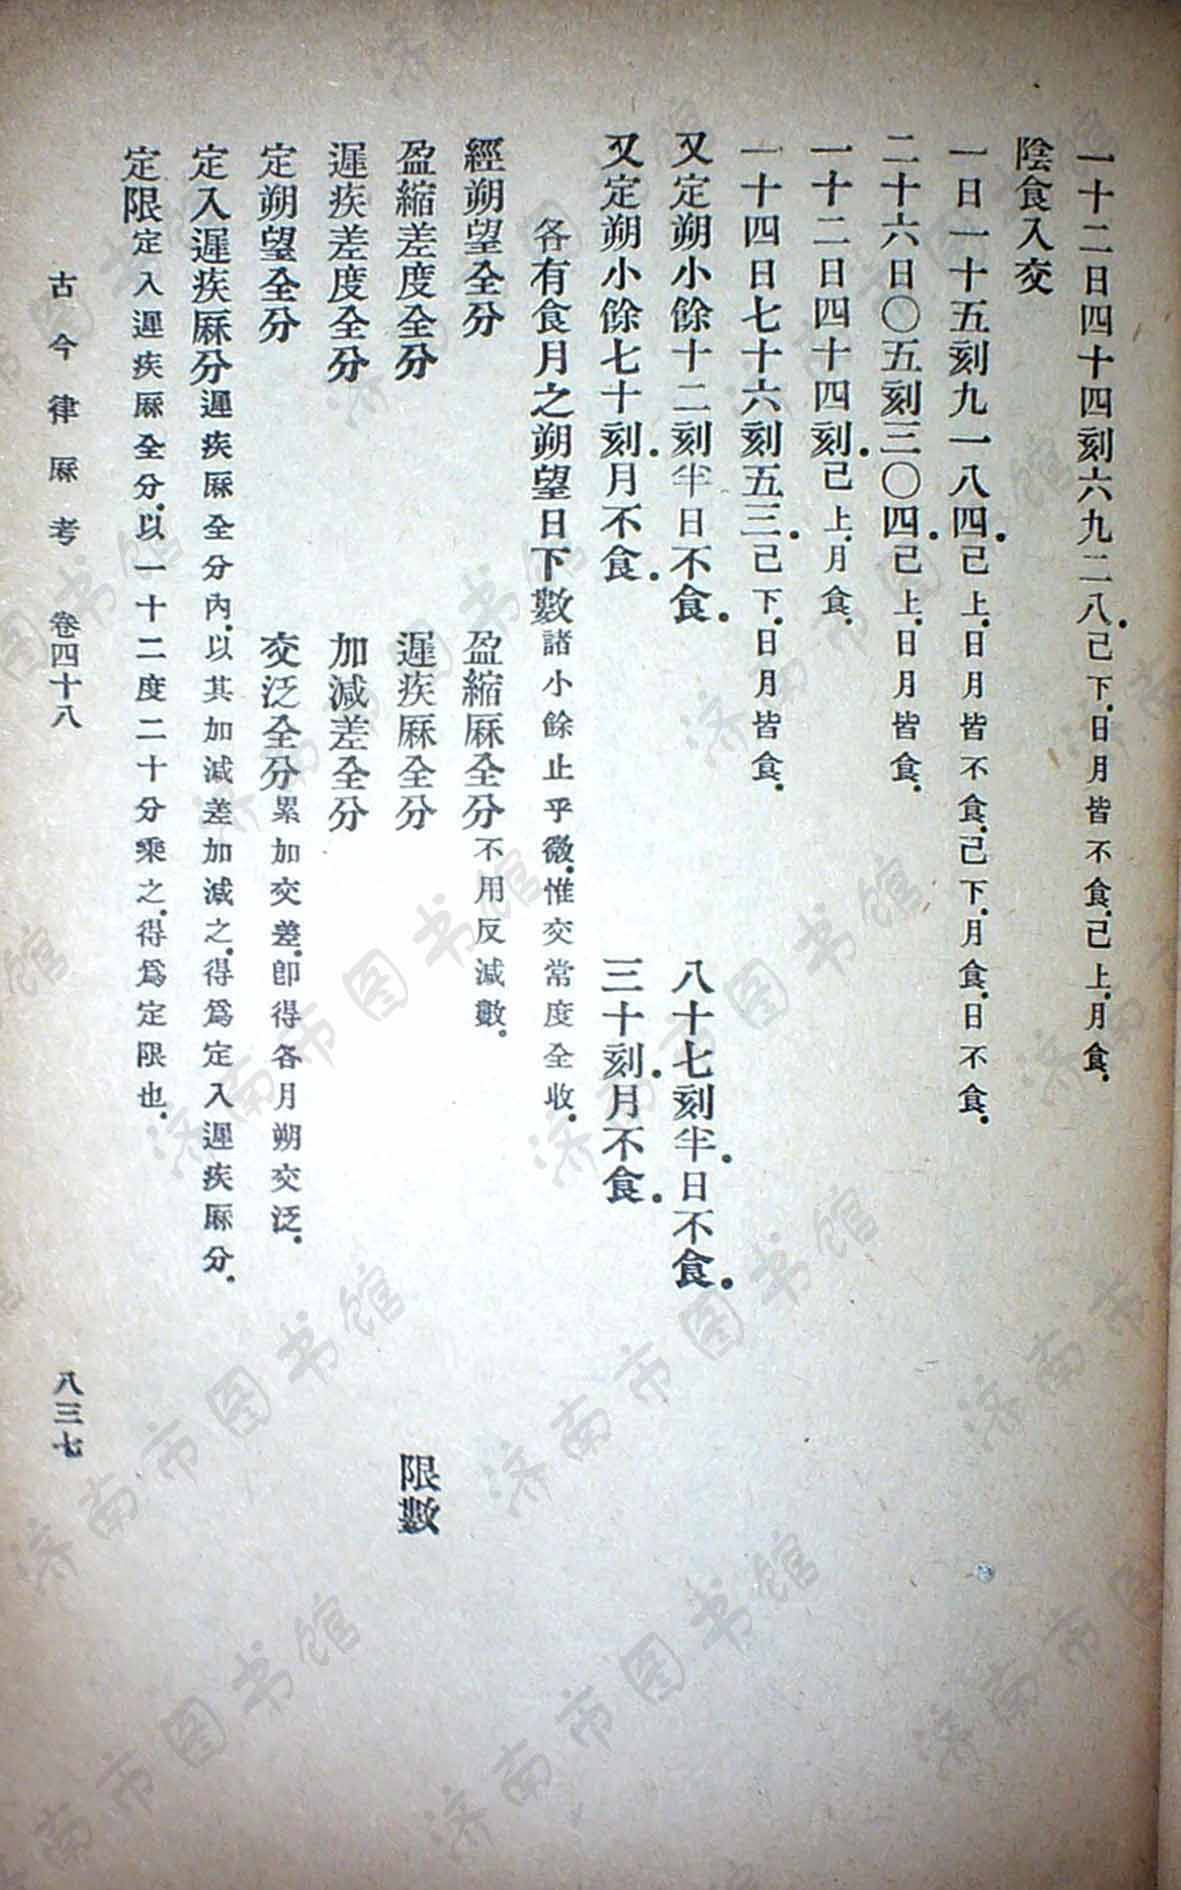 一十二日四十四刻六九二八。已下。日月皆不食。已上。月食。
陰食入交
一日一十五刻九一八四。已上。日月皆不食。已下。月食。日不食。
二十六日〇五刻三〇四。已上。日月皆食。
一十二日四十四刻。已上。月食。
一十四日七十六刻五三。已下。日月皆食。
又定朔小餘十二刻半日不食。 八十七刻半。日不食。
又定朔小餘七十刻。月不食。 三十刻。月不食。
各有食月之朔望日下數諸小餘止乎微。惟交常度全收。
經朔望全分 盈縮厤全分不用反減數。
盈縮差度全分 遲疾厤全分 限數
遲疾差度全分 加減差全分
定朔望全分 交泛全分累加交差。即得各月朔交泛。
定入遲疾厤分遲疾厤全分內。以其加減差加減之。得爲定入遲疾厤分。
定限定入遲疾厤全分。以一十二度二十分乘之。得爲定限也。
古今律厤考 卷四十八 八三七
济南市图书馆